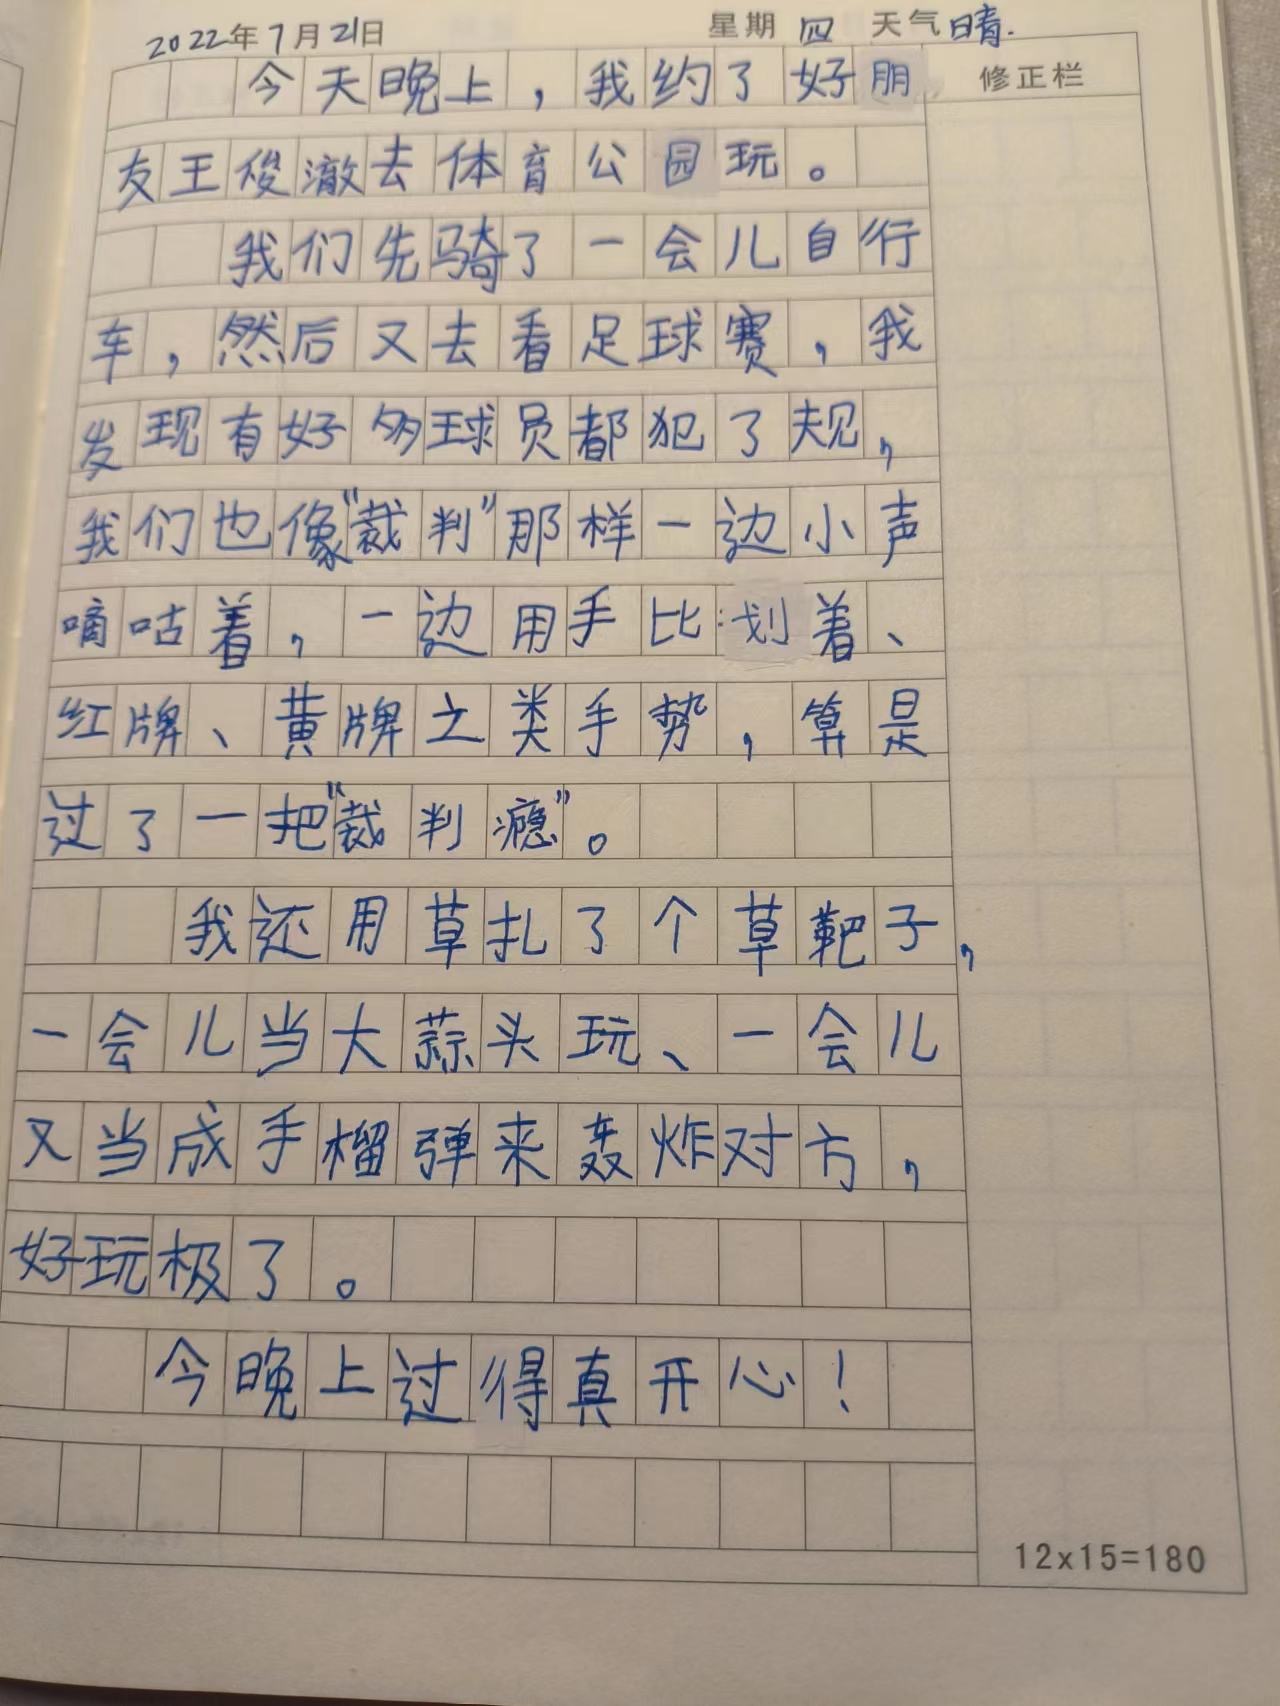 2022年7月21日 星期四 天气晴.
今天晚上，我约了好朋 修正栏
友王俊澈去体育公园玩。
我们先骑了一会儿自行
车，然后又去看足球赛，我
发现有好多球员都犯了规，
我们也像“裁判”那样一边小声
嘀咕着，一边用手比划着、
红牌、黄牌之类手势，算是
过了一把“裁判瘾”。
我还用草扎了个草靶子，
一会儿当大蒜头玩、一会儿
又当成手榴弹来轰炸对方，
好玩极了。
今晚上过得真开心！
12x15=180